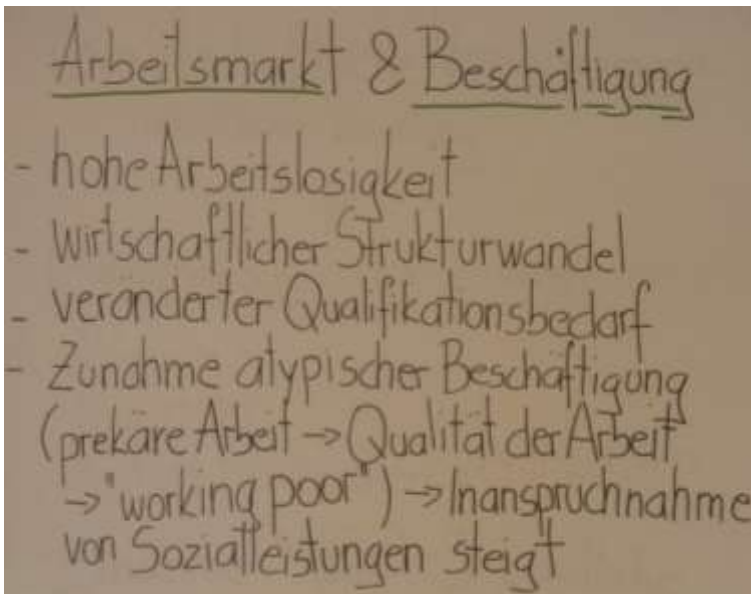 Arbeitsmarkt & Beschäftigung
- hohe Arbeitslosigkeit
- wirtschaftlicher Strukturwandel
- veränderter Qualifikationsbedarf
- Zunahme atypischer Beschäftigung
(prekäre Arbeit → Qualität der Arbeit
→ "working poor") → Inanspruchnahme
von Sozialleistungen steigt